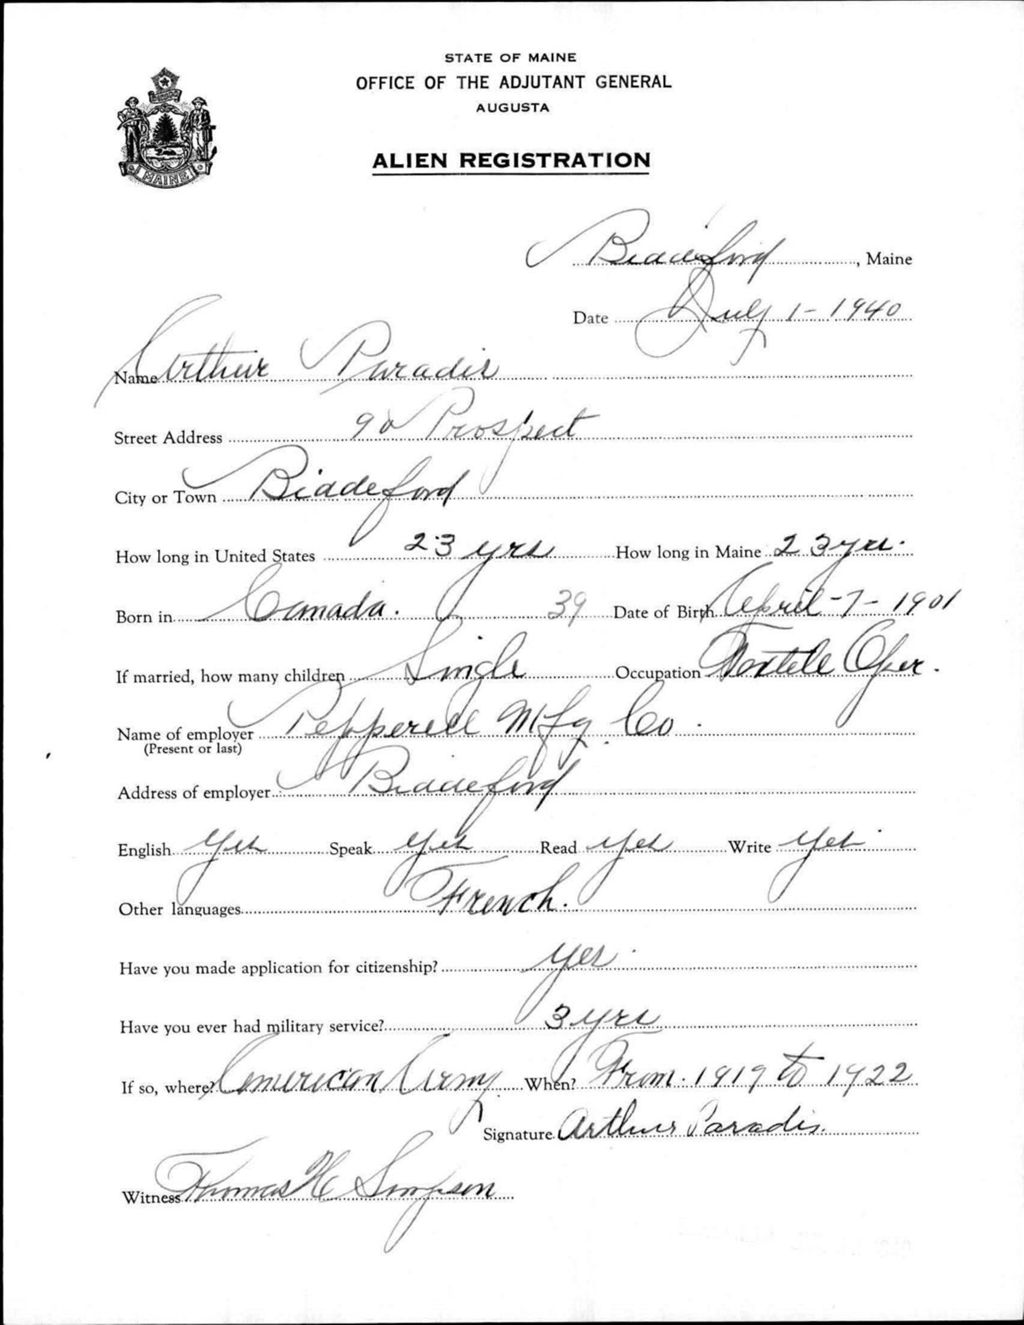 STATE OF MAINE
OFFICE OF THE ADJUTANT GENERAL
AUGUSTA
ALIEN REGISTRATION
MAINE
Biddeford, Maine
Date July 1-1940
Name Arthur Paradis
Street Address 90 Prospect
City or Town Biddeford
How long in United States 23 yrs How long in Maine 23 yrs.
Born in Canada. 39 Date of Birth April-7-1901
If married, how many children Single Occupation Textile Oper.
Name of employer Pepperell Mfg Co.
(Present or last)
Address of employer Biddeford
English Yes Speak Yes Read Yes Write Yes
Other languages French.
Have you made application for citizenship? Yes.
Have you ever had military service? 3 yrs
If so, where? American Army When? From. 1919 to 1922
Signature Arthur Paradis.
Witness Thomas H Simpson